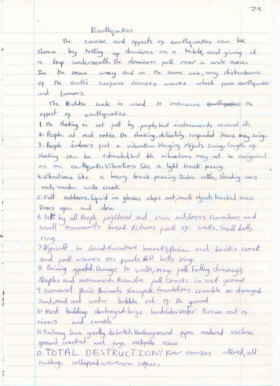 Earthquakes
The causes and effects of earthquakes can be
shown by setting up dominoes on a table, and giving it
a tap underneath the dominoes fall over a wave moves
In the same way and in the same way, any disturbance
of the earths surface causes waves which form earthquakes
and tremors.
The scale is used to measure the
effect of earthquakes.
1. The shaking is not felt by people but instruments record it.
2. People at rest notice the shaking, delicately suspended items may swing.
3. People indoors feel a vibration. Hanging objects swing. Length of
shaking can be estimated but the vibrations may not be recognised
as an earthquake. Vibrations like a light truck passing
4. Vibrations like a heavy truck passing. Dishes rattle, standing cars
rock, wooden walls creak.
5. Felt outdoors. Liquid in glasses slops out, small objects knocked over.
Doors open and close.
6. Felt by all. People frightened and run outdoors. Furniture and
small ornaments broken. Pictures fall off walls. Small bells
ring.
7. Difficult to stand. Furniture broken. Plaster and bricks crack
and fall waves on ponds. All bells ring.
8. Driving affected. Damage to walls, may fall. Falling chimneys.
Steeples and monuments. Branches fall. Cracks in wet ground
9. General panic. Animals Foundations crumble or damaged
Sand, mud and water bubble out of the ground
10. Most buildings destroyed. Large landslides. Water thrown out of
rivers and canals.
11. Railway lines greatly distorted. Underground pipes
ground cracked and
12. TOTAL DESTRUCTION! River courses altered, all
buildings collapsed